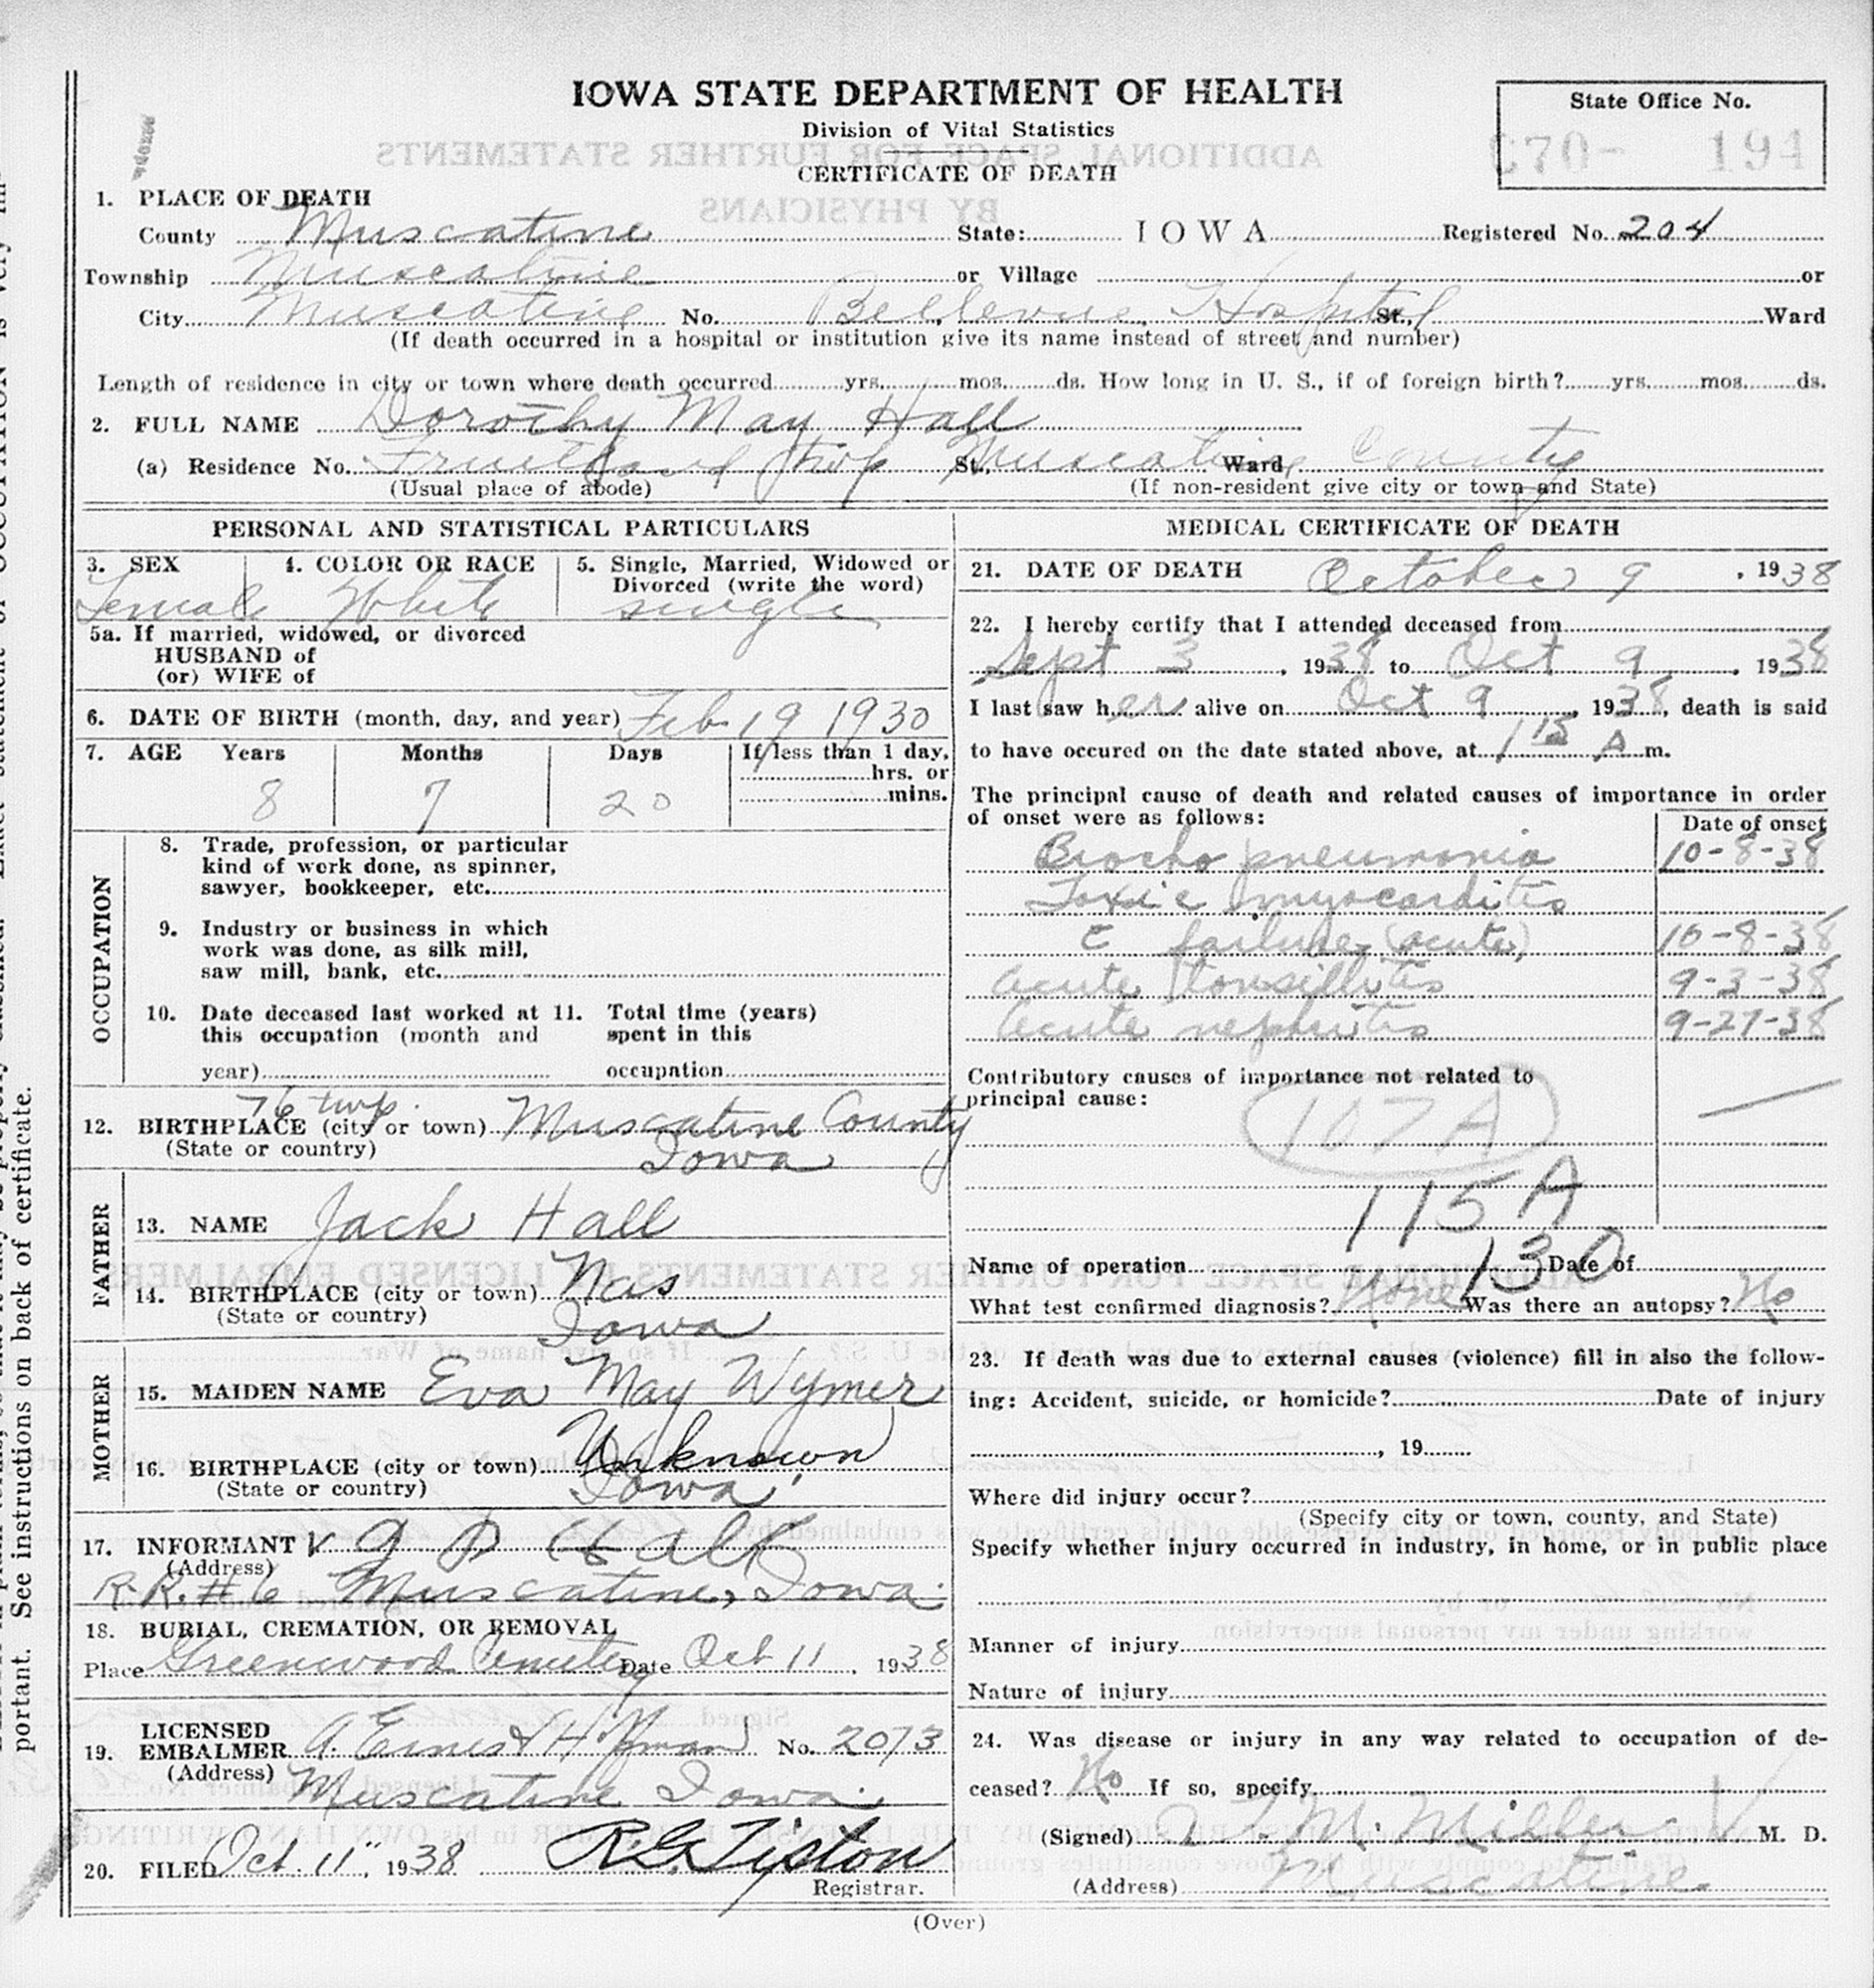 IOWA STATE DEPARTMENT OF HEALTH
Division of Vital Statistics
CERTIFICATE OF DEATH
State Office No.
C70- 194
1. PLACE OF DEATH
County Muscatine State: IOWA Registered No. 204
Township Muscatine or Village or
City Muscatine No. Bellevue Hospital St., Ward
(If death occurred in a hospital or institution give its name instead of street and number)
Length of residence in city or town where death occurred yrs. mos. ds. How long in U. S., if of foreign birth? yrs. mos. ds.
2. FULL NAME Dorothy May Hall
(a) Residence No. Fruitland Twp St., Muscatine Ward County
(Usual place of abode) (If non-resident give city or town and State)
PERSONAL AND STATISTICAL PARTICULARS
3. SEX 4. COLOR OR RACE 5. Single, Married, Widowed or
Divorced (write the word)
Female White single
5a. If married, widowed, or divorced
HUSBAND of
(or) WIFE of
6. DATE OF BIRTH (month, day, and year) Feb 19 1930
7. AGE Years Months Days If less than 1 day,
hrs. or
8 7 20 mins.
OCCUPATION
8. Trade, profession, or particular
kind of work done, as spinner,
sawyer, bookkeeper, etc.
9. Industry or business in which
work was done, as silk mill,
saw mill, bank, etc.
10. Date deceased last worked at 11. Total time (years)
this occupation (month and spent in this
year) occupation
76 twp.
12. BIRTHPLACE (city or town) Muscatine County
(State or country) Iowa
FATHER
13. NAME Jack Hall
14. BIRTHPLACE (city or town)
(State or country) Iowa
MOTHER
15. MAIDEN NAME Eva May Wymer
16. BIRTHPLACE (city or town) Unknown
(State or country) Iowa
17. INFORMANT Hall
(Address)
R.R. #6 Muscatine, Iowa.
18. BURIAL, CREMATION, OR REMOVAL
Place Greenwood Cemetery Date Oct 11, 1938
LICENSED
19. EMBALMER A. Ernest Hoffman No. 2073
(Address) Muscatine Iowa.
20. FILED Oct. 11", 1938 R.G. Tipton
Registrar.
MEDICAL CERTIFICATE OF DEATH
21. DATE OF DEATH October 9, 1938
22. I hereby certify that I attended deceased from
Sept 3, 1938 to Oct 9, 1938
I last saw her alive on Oct 9, 1938, death is said
to have occured on the date stated above, at 1 15 A m.
The principal cause of death and related causes of importance in order
of onset were as follows: Date of onset
Brocho pneumonia 10-8-38
Toxic myocarditis
c failure (acute) 10-8-38
Acute tonsillitis 9-3-38
Acute nephritis 9-27-38
Contributory causes of importance not related to
principal cause:
107A
115A
130
Name of operation Date of
What test confirmed diagnosis? None Was there an autopsy? No
23. If death was due to external causes (violence) fill in also the follow-
ing: Accident, suicide, or homicide? Date of injury
, 19
Where did injury occur?
(Specify city or town, county, and State)
Specify whether injury occurred in industry, in home, or in public place
Manner of injury
Nature of injury
24. Was disease or injury in any way related to occupation of de-
ceased? No If so, specify
(Signed) M. Miller M. D.
(Address) Muscatine
(Over)
portant. See instructions on back of certificate.